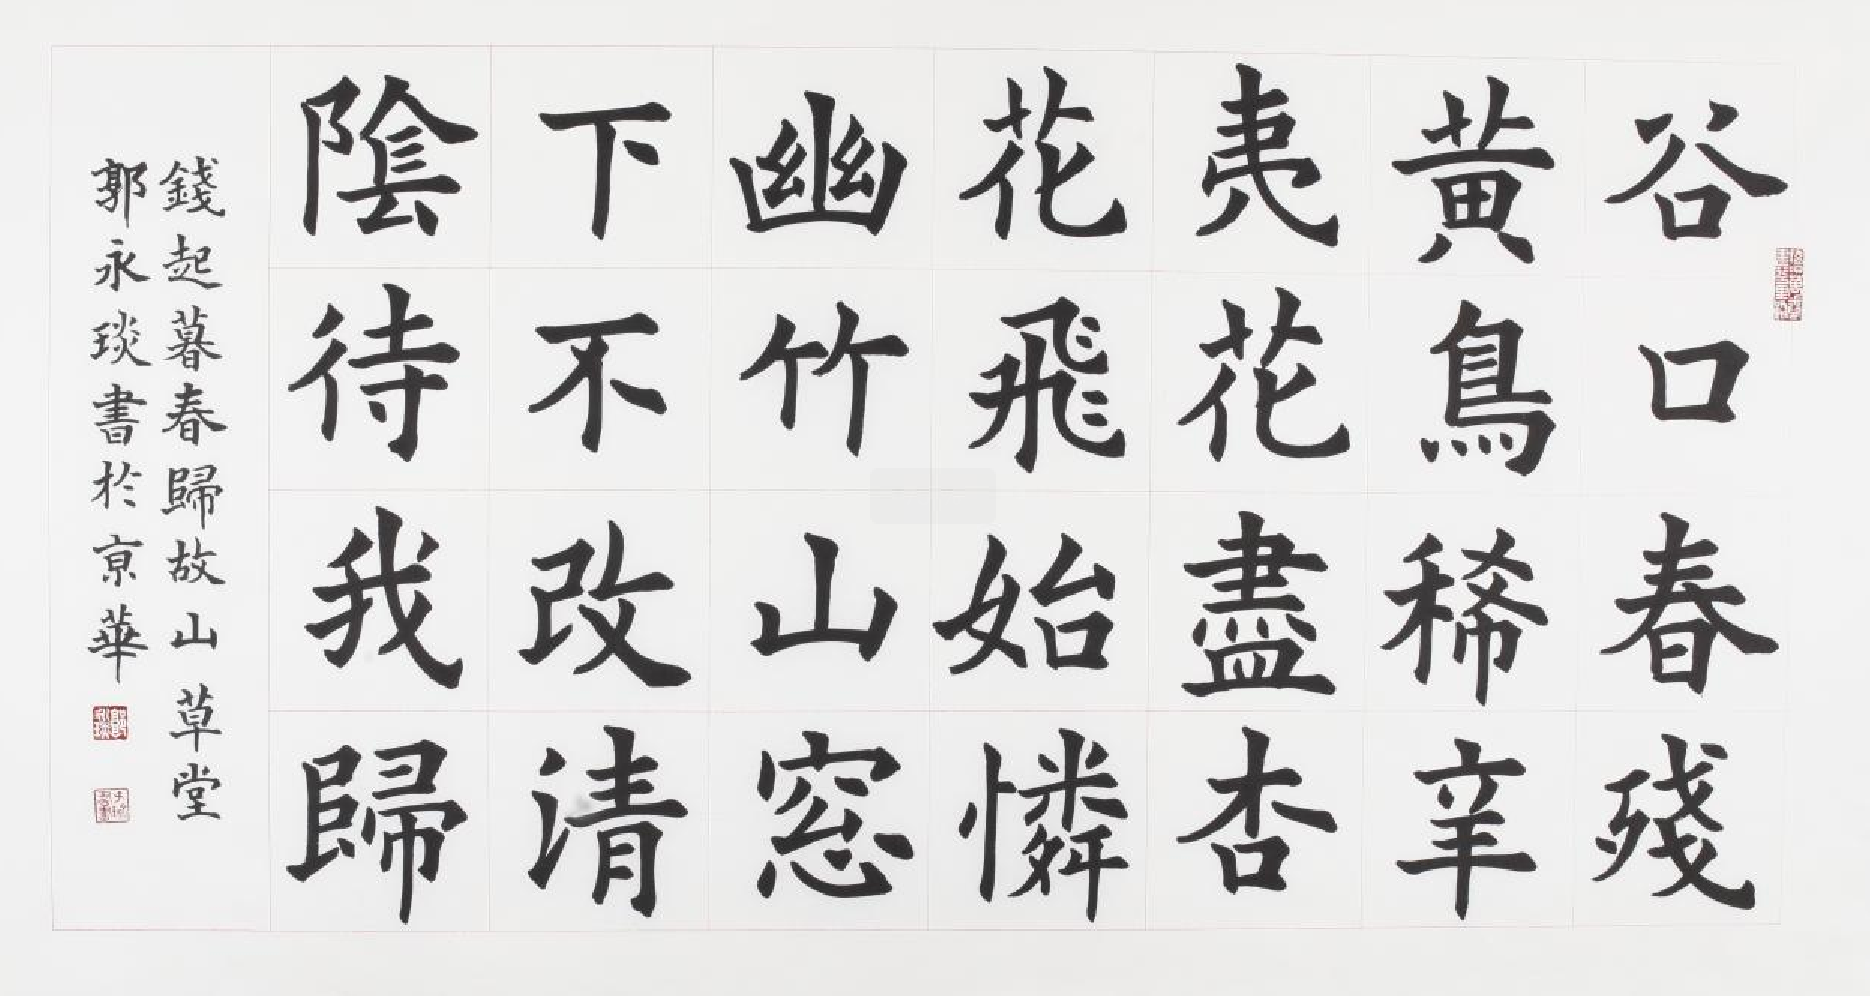 谷口春殘
黄鳥稀辛
夷花盡杏
花飛始憐
幽竹山窓
下不改清
陰待我歸
錢起暮春歸故山草堂
郭永琰書於京華